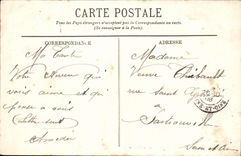 CARTE POSTALE
Tous les pays étrangers n'acceptent pas la Correspondance au recto
(Se renseigner à la Poste)
CORRESPONDANCE
ADRESSE
Ma Tante
Votre Neveu qui
vous aime et qui
pense à vous
Amédée
Madame
Veuve Thibault
rue Saint
à
Sartrouville
Seine et Oise